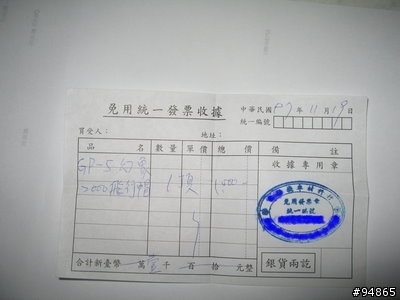 免用統一發票收據
中華民國 97 年 11 月 19 日
統一編號
買受人：
地址：
品名 數量 單價 總價 備註
GP-5
2000飛行帽 1頂 1,000
收據專用章
免用發票章
統一編號
銀貨兩訖
合計新臺幣 萬 壹 千 百 拾 元整
#94865